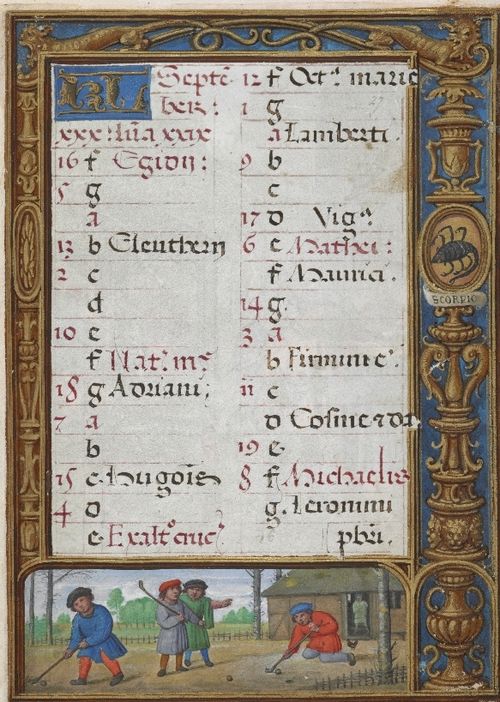 KL Septē
ber:
xxx: lūa xxix
16 f Egidii:
5 g
a
13 b Eleutherii
2 c
d
10 e
f Nat.s m.e
18 g Adriani:
7 a
b
15 c Hugois
4 d
e Exalt.o cruc.
12 f Oct.a marie
1 g
a Lamberti.
9 b
c
17 d Vig.a
6 e Mathei:
f Maurici.
14 g
3 a
b Firmini e.
11 c
d Cosme et da.
19 e
8 f Michaelis
g Ieronimi
pbri.
SCORPIO